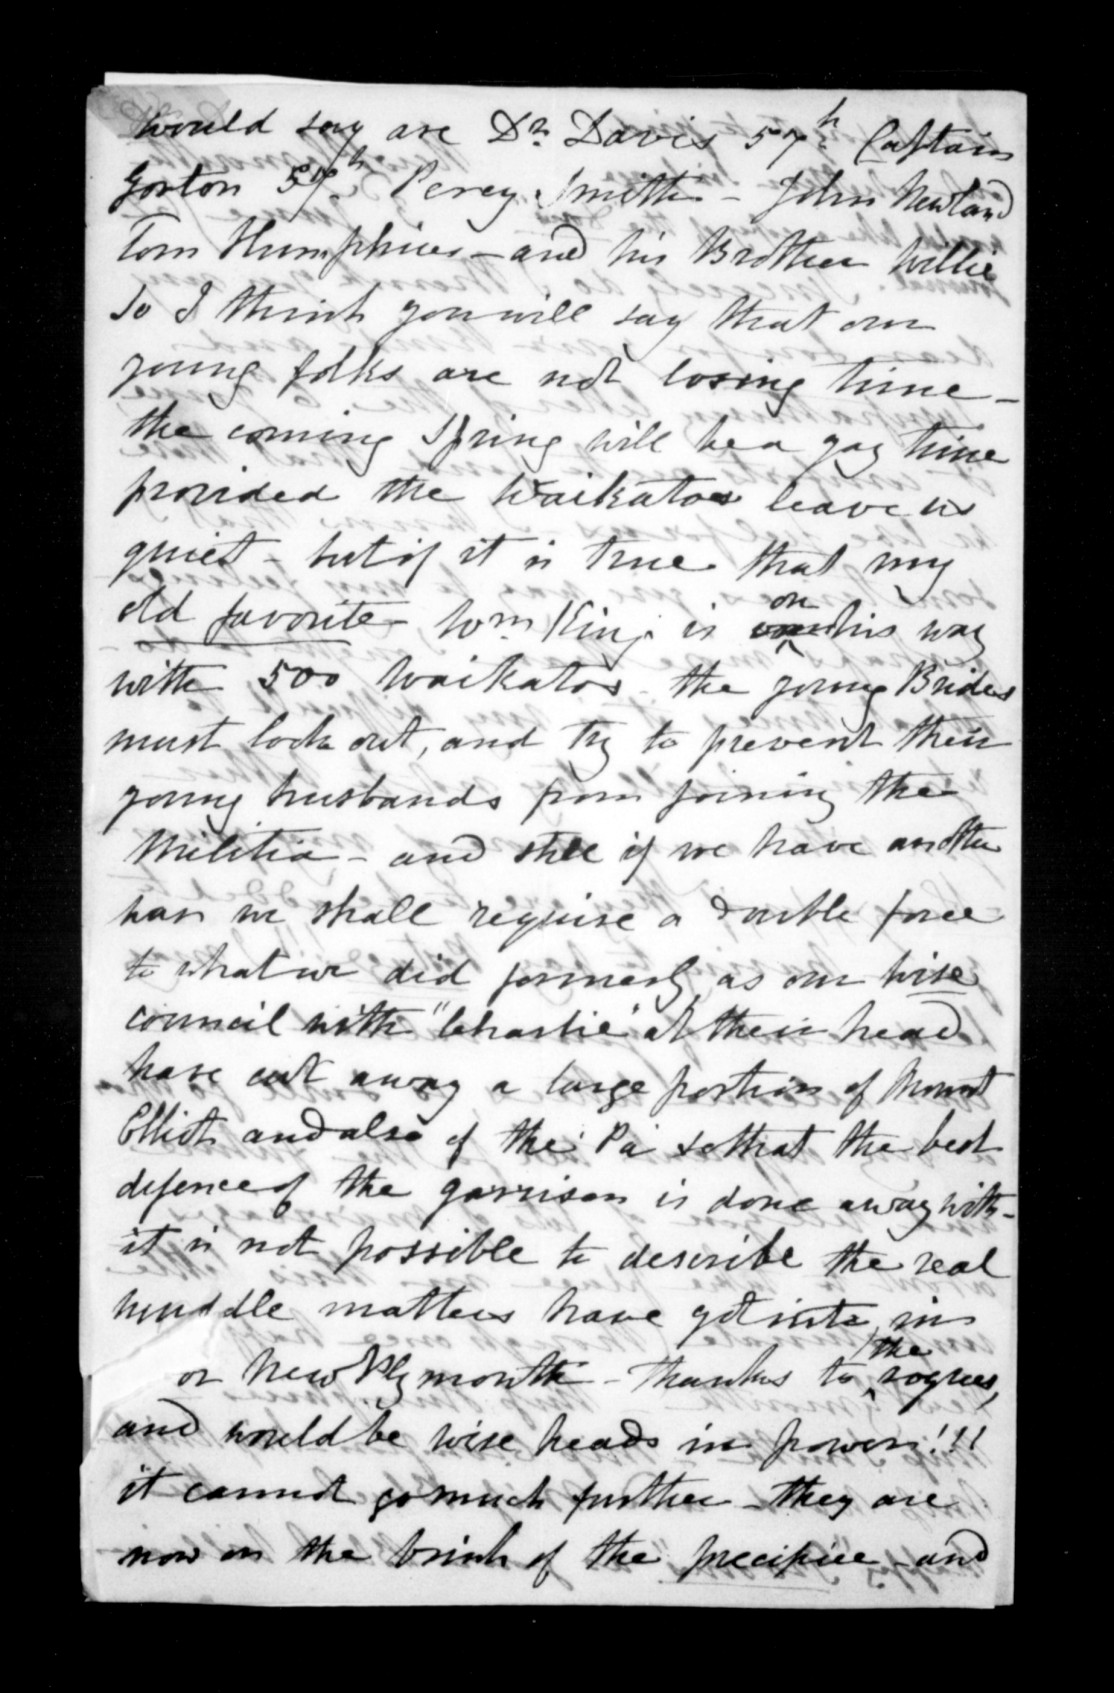 would say are Dr. Davis 57th. Captain
Gorton 57th. Percy Smith - John Newland
Tom Humphries - and his Brother Willie
so I think you will say that our
young folks are not losing time -
the coming Spring will be a gay time
provided the Waikatos leave us
quiet - but if it is true that my
old favorite Wm King is on his way
with 500 Waikatos - the young Brides
must look out, and try to prevent their
young husbands from joining the
Militia - and still if we have another
war we shall require a double force
to what we did formerly, as our wise
council with "Charlie" at their head
have cut away a large portion of Mount
Elliot and also of the Pa so that the best
defence of the garrison is done away with -
it is not possible to describe the real
muddle matters have got into, in
or New Plymouth - thanks to the rogues,
and would be wise heads in power!!!
it cannot go much further - they are
now on the brink of the precipice - and